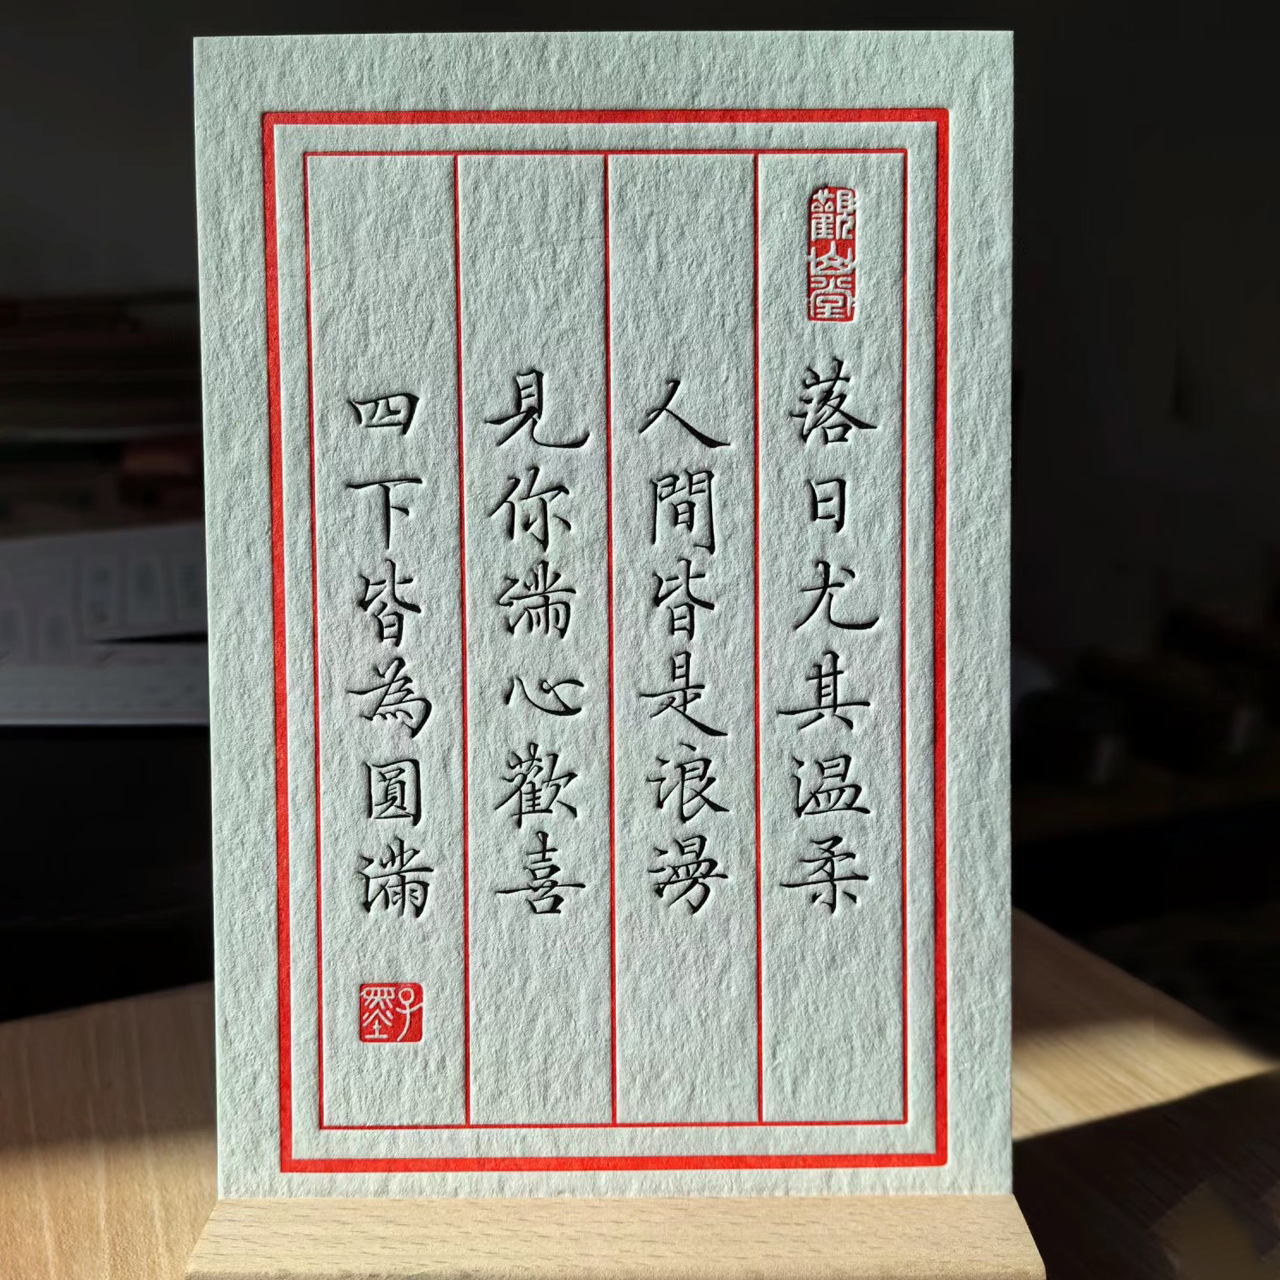 觀山堂
落日尤其温柔
人間皆是浪漫
見你滿心歡喜
四下皆為圓滿